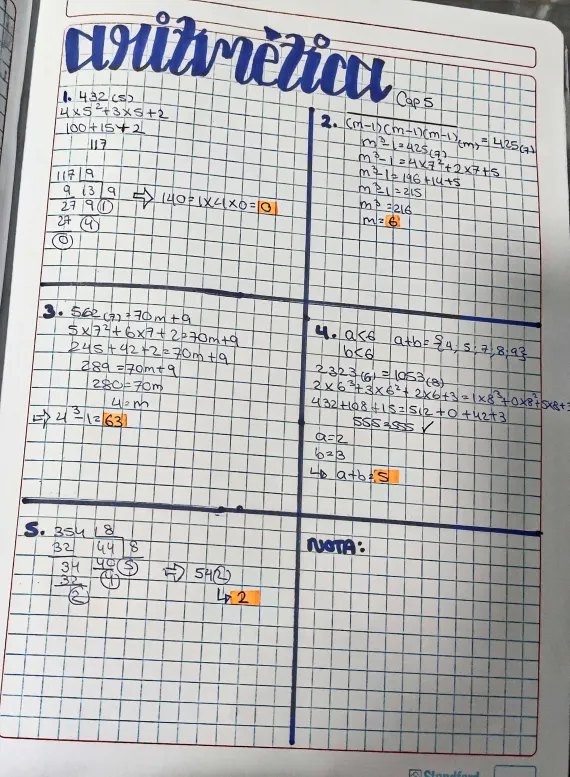 aritmètica
Cap 5
1. 432 (5)
4x5²+3x5+2
100+15+2
117
117 9
9 13 9
27 9 1
27 4
0
⇒ 140=1x4x0=0
2. (m-1)(m-1)(m-1)(m) = 425(7)
m³-1=425(7)
m³-1=4x7²+2x7+5
m³-1=196+14+5
m³-1=215
m³=216
m=6
3. 562(7)=70m+9
5x7²+6x7+2=70m+9
245+42+2=70m+9
289=70m+9
280=70m
4=m
⇒ 4³-1=63
4. a<6 a+b={4; 5; 7; 8; 9}
b<6
2323(6)=1053(8)
2x6³+3x6²+2x6+3=1x8³+0x8²+5x8+3
432+108+15=512+0+42+3
555=555 ✓
a=2
b=3
↳ a+b=5
5. 354 8
32 44 8
34 40 5
32 4
2
⇒ 54(2)
↳ 2
NOTA:
Standford